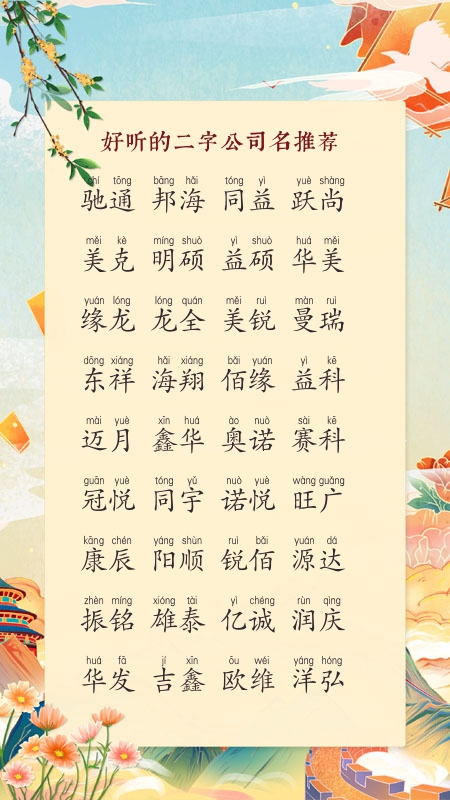 好听的二字公司名推荐
chí tōng bāng hǎi tóng yì yuè shàng
驰通 邦海 同益 跃尚
měi kè míng shuò yì shuò huá měi
美克 明硕 益硕 华美
yuán lóng lóng quán měi ruì màn ruì
缘龙 龙全 美锐 曼瑞
dōng xiáng hǎi xiáng bǎi yuán yì kē
东祥 海翔 佰缘 益科
mài yuè xīn huá ào nuò sài kē
迈月 鑫华 奥诺 赛科
guān yuè tóng yǔ nuò yuè wàng guǎng
冠悦 同宇 诺悦 旺广
kāng chén yáng shùn ruì bǎi yuán dá
康辰 阳顺 锐佰 源达
zhèn míng xióng tài yì chéng rùn qìng
振铭 雄泰 亿诚 润庆
huá fā jí xīn ōu wéi yáng hóng
华发 吉鑫 欧维 洋弘